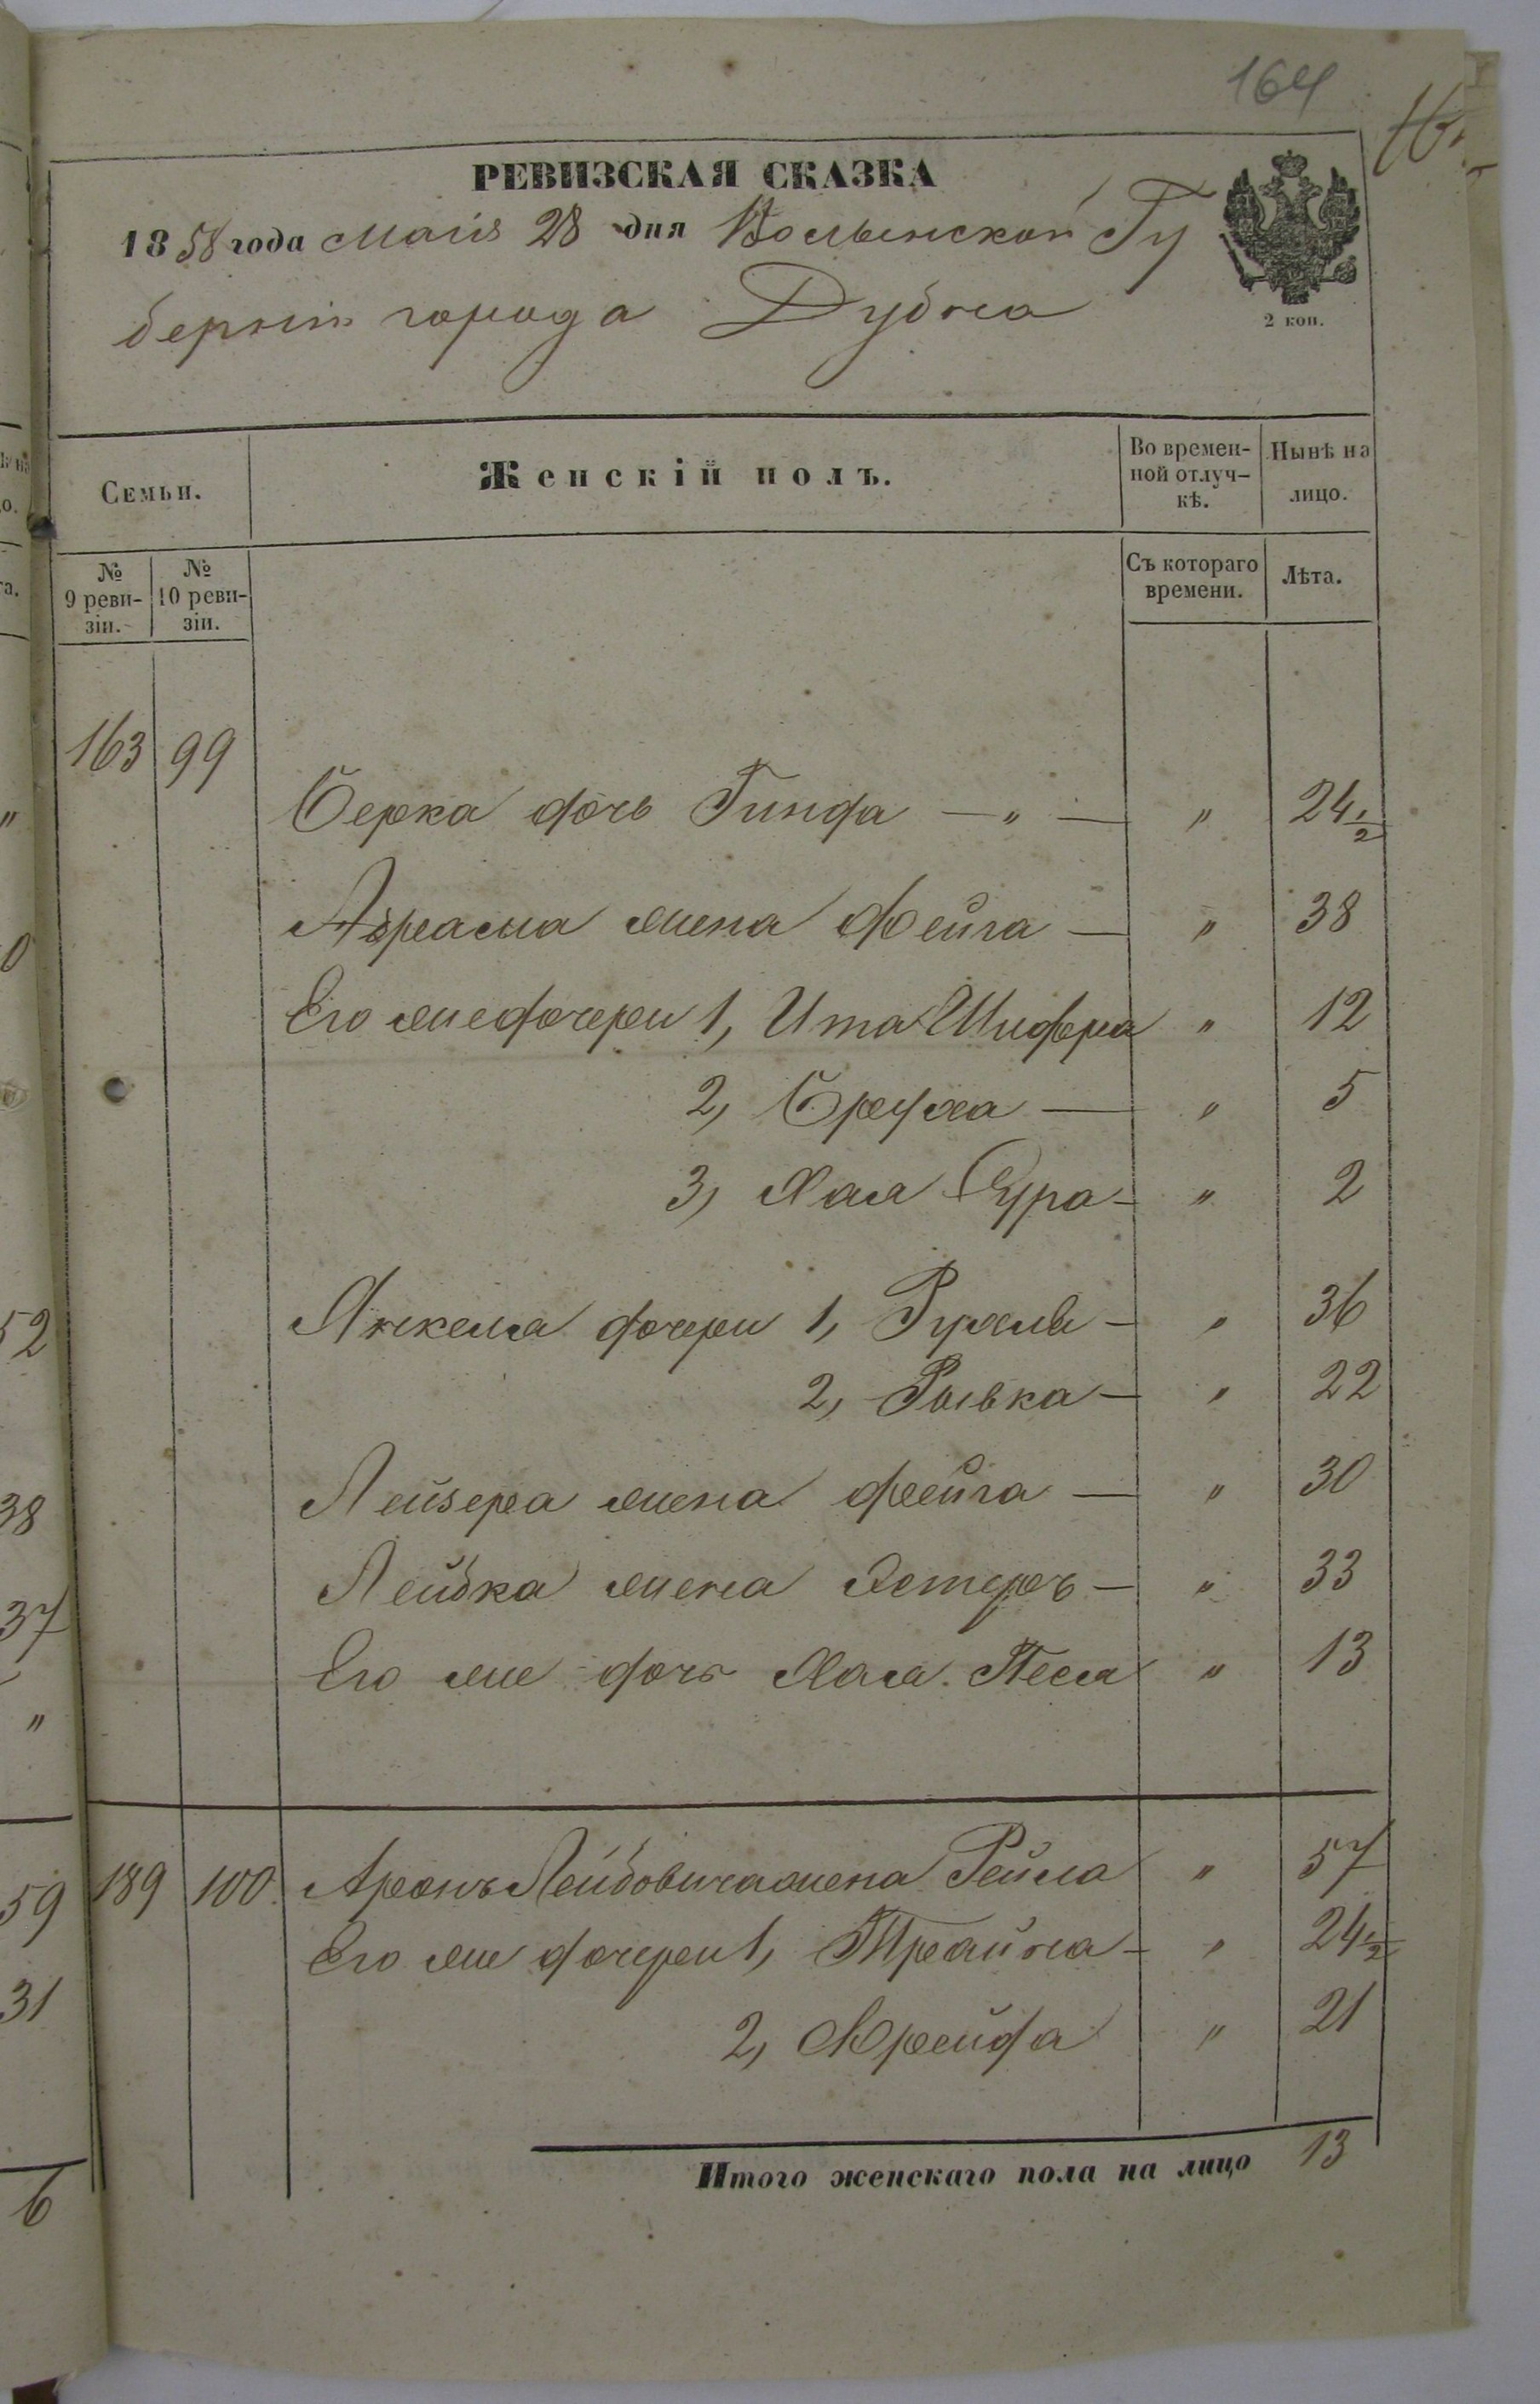 164
РЕВИЗСКАЯ СКАЗКА
1858 года Маія 28 дня Волынской Гу
берніи города Дубна
2 коп.
Семьи.
Женскій полъ.
Во времен-
ной отлуч-
кѣ.
Нынѣ на
лицо.
№
9 реви-
зіи.
№
10 реви-
зіи.
Съ котораго
времени.
Лѣта.
163 99
Берка дочь Гинда — „ — „ 24 1/2
Абрама жена Фейга — „ 38
Его же дочери 1, Ита Шифра „ 12
2, Бруха — „ 5
3, Хая Сура - „ 2
Янкеля дочери 1, Рухля - „ 36
2, Рывка - „ 22
Лейзера жена Фейга — „ 30
Лейбка жена Эстеръ - „ 33
Его же дочь Хая Песя „ 13
189 100 Аронъ Лейбовича жена Рейла „ 57
Его же дочери 1, Трайна - „ 24 1/2
2, Фрейда „ 21
Итого женскаго пола на лицо 13
„
0
52
38
37
„
59
31
6